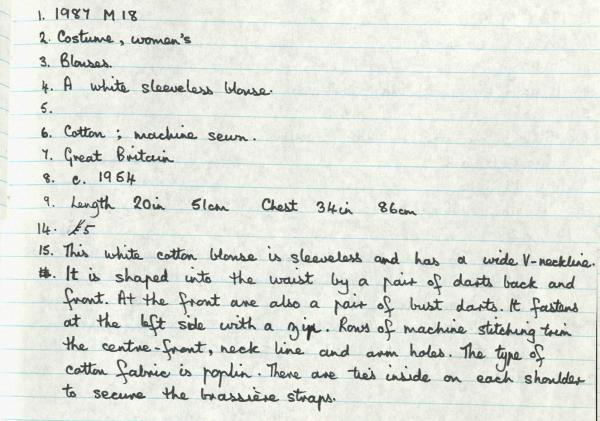 1. 1987 M 18
2. Costume, women's
3. Blouses.
4. A white sleeveless blouse.
5.
6. Cotton ; machine sewn.
7. Great Britain
8. c. 1954
9. Length 20in 51cm Chest 34in 86cm
14. £5
15. This white cotton blouse is sleeveless and has a wide V-neckline.
It is shaped into the waist by a pair of darts back and
front. At the front are also a pair of bust darts. It fastens
at the left side with a zip. Rows of machine stitching trim
the centre-front, neck line and arm holes. The type of
cotton fabric is poplin. There are ties inside on each shoulder
to secure the brassière straps.